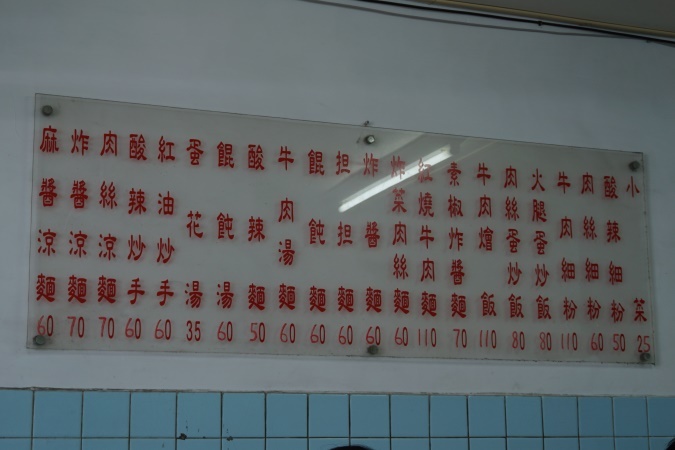 小菜 25
酸辣細粉 50
肉絲細粉 60
牛肉細粉 110
火腿蛋炒飯 80
肉絲蛋炒飯 80
牛肉燴飯 110
素椒炸醬麵 70
紅燒牛肉麵 110
炸菜肉絲麵 60
炸醬麵 60
担担麵 60
餛飩麵 60
牛肉湯麵 60
酸辣麵 50
餛飩湯 60
蛋花湯 35
紅油炒手 60
酸辣炒手 60
肉絲涼麵 70
炸醬涼麵 70
麻醬涼麵 60